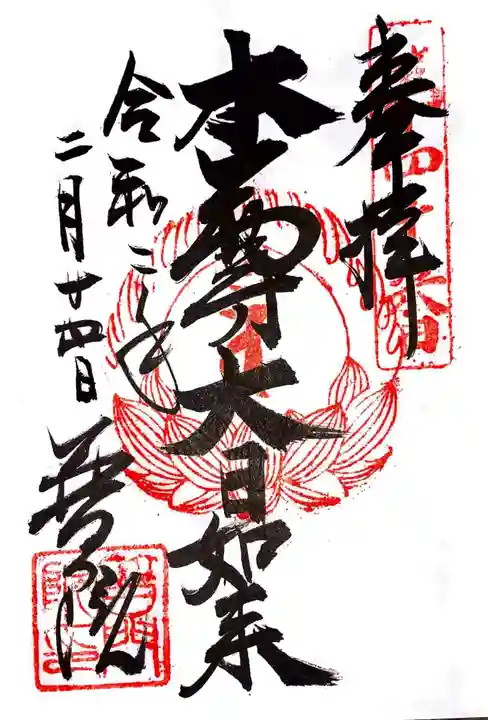 奉拝
本尊大日如来
令和二年
二月廿四日
普門院